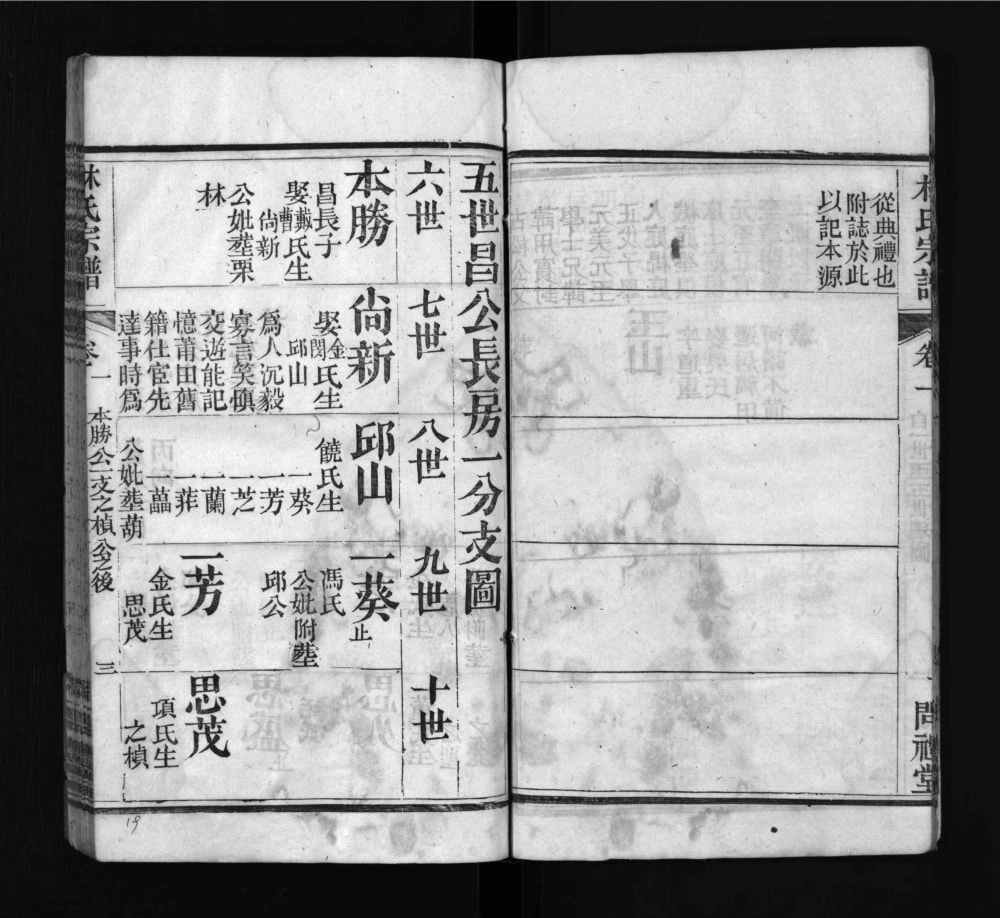 林氏宗譜
卷一
問禮堂
從典禮也
附誌於此
以記本源
五世昌公長房一分支圖
六世
七世
八世
九世
十世
本勝
昌長子
娶戴曹氏生
尚新
公妣塟栗
林
尚新
娶金閔氏生
邱山
爲人沉毅
寡言笑慎
交遊能記
憶莆田舊
籍仕宦先
達事時爲
邱山
饒氏生
一葵
一芳
一芝
一蘭
一菲
一藟
公妣塟葫
一葵止
馮氏
公妣附塟
邱公
一芳
金氏生
思茂
思茂
項氏生
之楨
林氏宗譜
卷一
本勝公一支之楨公之後
三
19